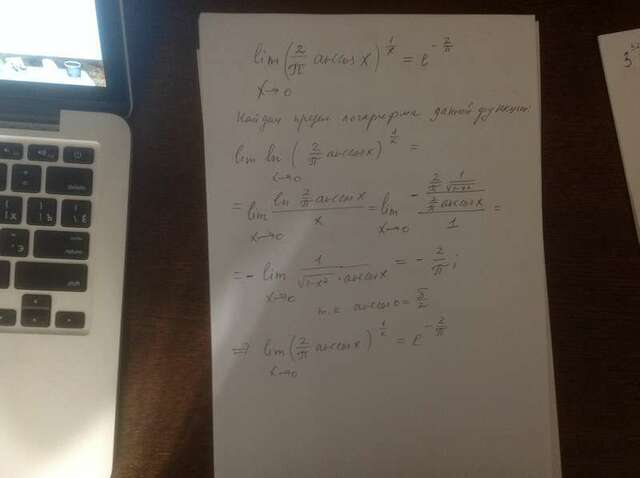 lim (2/π arccos x)^(1/x) = e^(-2/π)
x→0
Найдем предел логарифма данной функции:
lim ln (2/π arccos x)^(1/x) =
x→0
= lim (ln 2/π arccos x)/x = lim (-(2/π · 1/√(1-x²))/(2/π arccos x))/1 =
x→0 x→0
= - lim 1/(√(1-x²) · arccos x) = -2/π;
x→0
т.к. arccos 0 = π/2
⇒ lim (2/π arccos x)^(1/x) = e^(-2/π)
x→0
shift